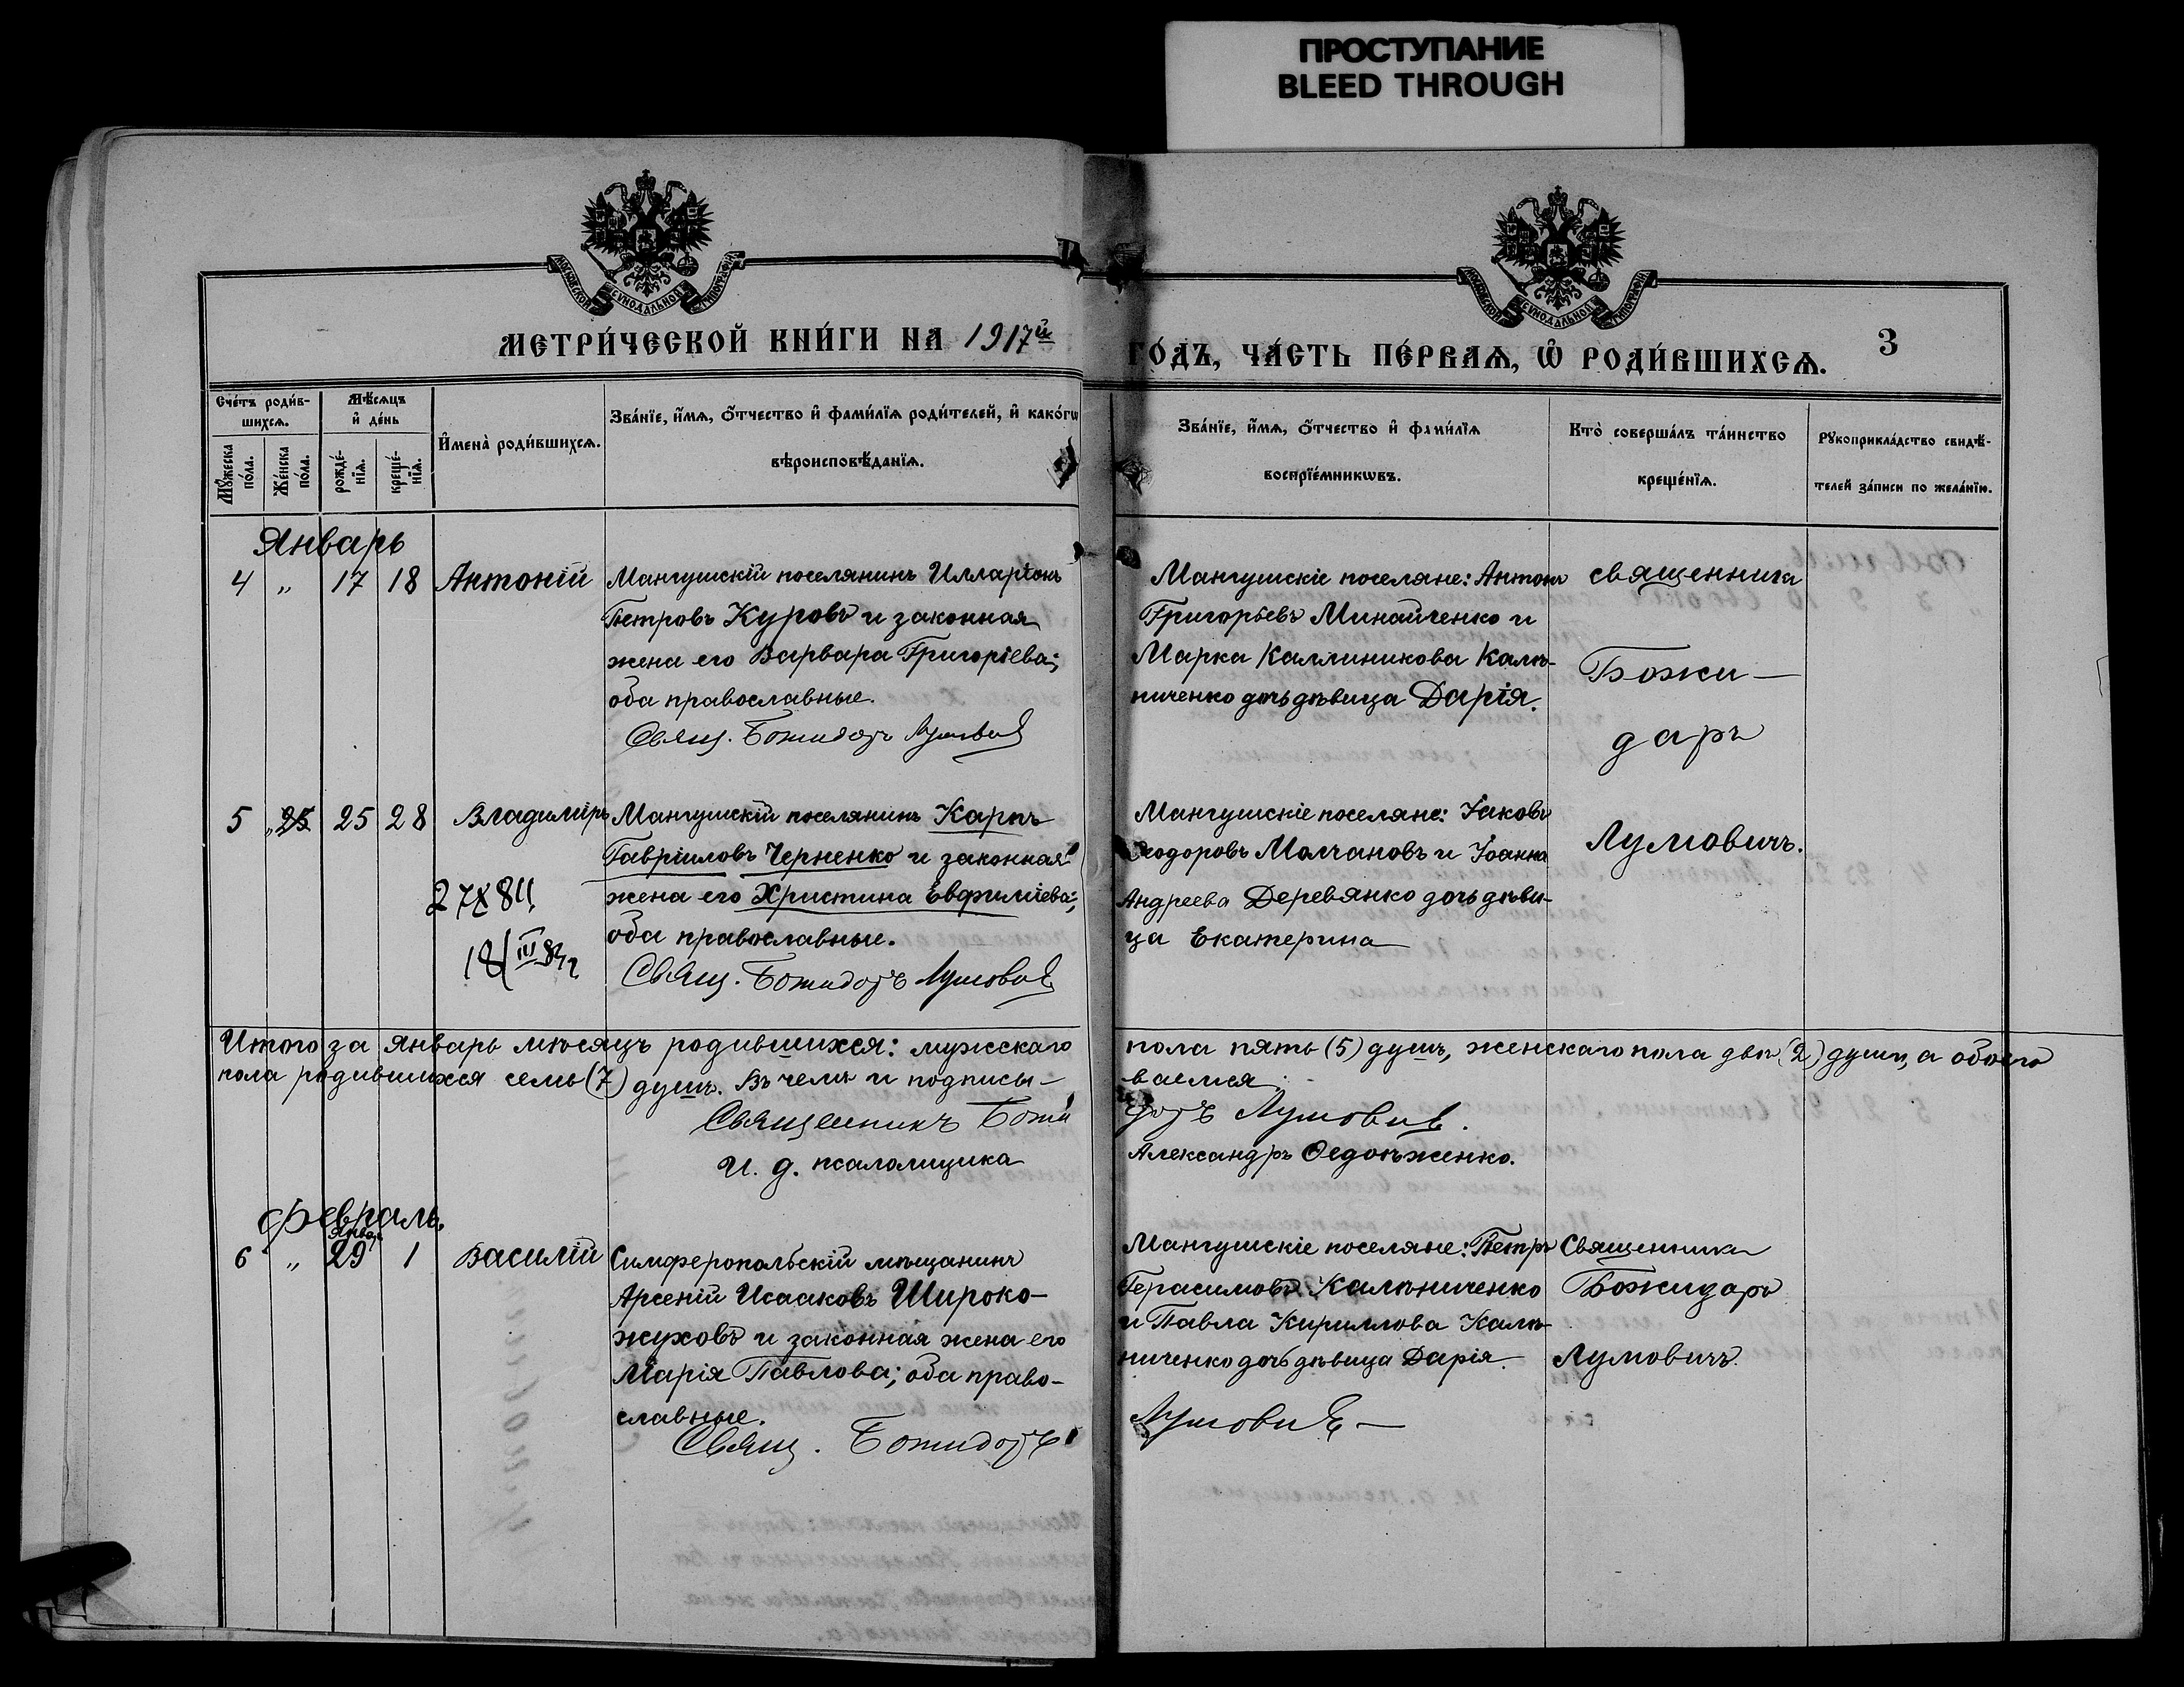 ПРОСТУПАНИЕ
BLEED THROUGH
МЕТРИ́ЧЕСКОЙ КНИ́ГИ НА 1917й
ГО́ДЪ, ЧА́СТЬ ПЕ́РВАѦ, Ѡ РОДИ́ВШИХСѦ.
3
Сче́тъ роди́в-
шихсѧ.
Мѣ́сѧцъ
и҆ де́нь
Мꙋ́жеска
по́ла.
Же́нска
по́ла.
рожде́-
нїѧ.
креще́-
нїѧ.
И҆мена̀ роди́вшихсѧ.
Зва́нїе, и҆́мѧ, о҆́тчество и҆ фами́лїѧ роди́телей, и҆ како́гѡ
вѣроисповѣ́данїѧ.
Зва́нїе, и҆́мѧ, о҆́тчество и҆ фами́лїѧ
воспрїе́мникѡвъ.
Кто̀ соверша́лъ та́инство
креще́нїѧ.
Рꙋкоприкла́дство свидѣ́-
телей за́писи по жела́нїю.
Январь
4 „ 17 18 Антоній
Мангушскій поселянинъ Илларіонъ
Петровъ Куровъ и законная
жена его Варвара Григоріева;
оба православные.
Свящ. Божидаръ Лумовичъ
Мангушскіе поселяне: Антонъ
Григорьевъ Минайченко и
Марка Каллиникова Калъ-
ниченко дочь дѣвица Дарія.
священникъ
Божи-
даръ
Лумовичъ.
5 „ 25 25 28 Владимиръ
Мангушскій поселянинъ Карпъ
Гавріиловъ Черненко и законная
жена его Христина Евфиміева;
оба православные.
Свящ. Божидаръ Лумовичъ
Мангушскіе поселяне: Іаковъ
Ѳеодоровъ Молчановъ и Іоанна
Андреева Деревянко дочь дѣви-
ца Екатерина
Итого за Январь мѣсяцъ родившихся: мужескаго
пола пять (5) душъ, женскаго пола двѣ (2) души, а обоего
пола родившихся семь (7) душъ. Въ чемъ и подписы-
ваемся:
Священникъ Божи
даръ Лумовичъ.
И. д. псаломщика
Александръ
Февраль.
Январ
6 „ 29 1 Василій
Симферопольскій мѣщанинъ
Арсеній Исааковъ Широко-
жуховъ и законная жена его
Марія Павлова; оба право-
славные.
Свящ. Божидаръ
Мангушскіе поселяне: Петръ
Герасимовъ Калъниченко
и Павла Кириллова Калъ-
ниченко дочь дѣвица Дарія.
Лумовичъ
Священникъ
Божидаръ
Лумовичъ.